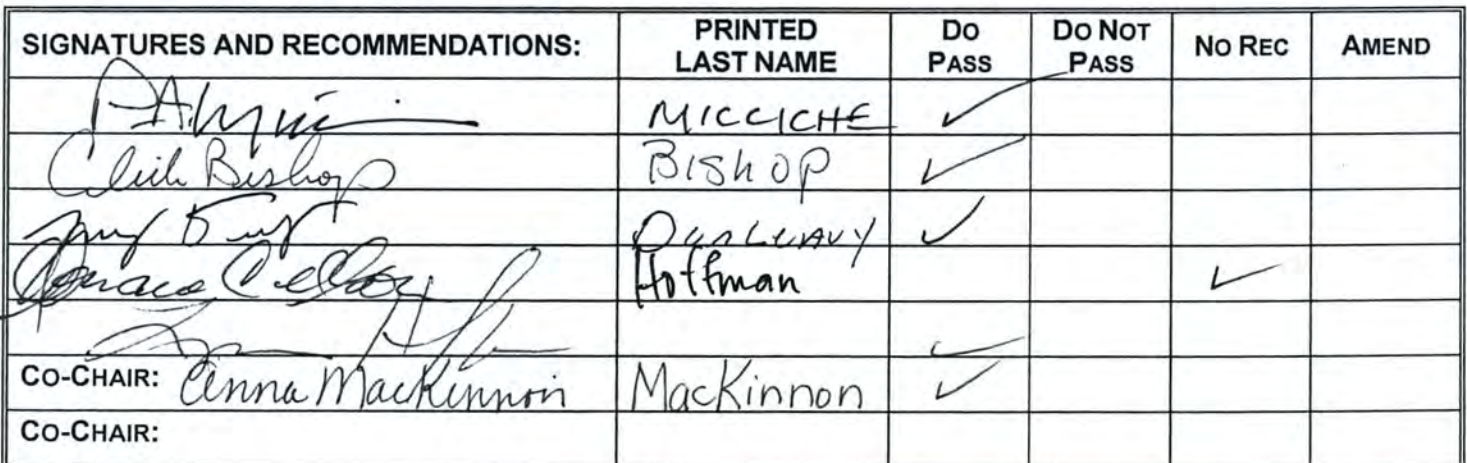 SIGNATURES AND RECOMMENDATIONS: PRINTED LAST NAME DO PASS DO NOT PASS NO REC AMEND
MICCICHE ✓
Click Bishop BISHOP ✓
DUNLEAVY ✓
Hoffman ✓
✓
CO-CHAIR: Anna MacKinnon MacKinnon ✓
CO-CHAIR: